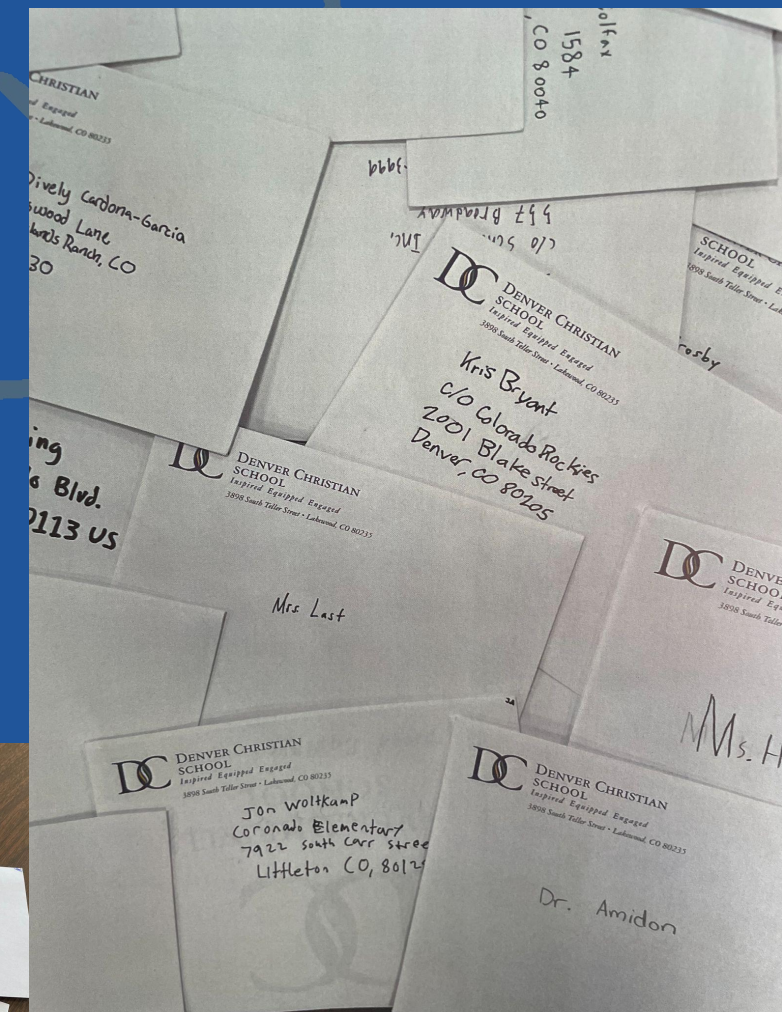 olfax
1584
, CO 80040
CHRISTIAN
d Engaged
• Lakewood, CO 80235
Dively Cardona-Garcia
swood Lane
lands Ranch, CO
30
-3999
557 Broadway
c/o
Inc.
SCHOOL
Inspired Equipped E
3898 South Teller Street • La
rosby
DC DENVER CHRISTIAN
SCHOOL
Inspired Equipped Engaged
3898 South Teller Street • Lakewood, CO 80235
Kris Bryant
c/o Colorado Rockies
2001 Blake street
Denver, CO 80205
ing
Blvd.
0113 US
DC DENVER CHRISTIAN
SCHOOL
Inspired Equipped Engaged
3898 South Teller Street • Lakewood, CO 80235
Mrs Last
DC DENVE
SCHOO
Inspired Eq
3898 South Teller
Ms. H
DC DENVER CHRISTIAN
SCHOOL
Inspired Equipped Engaged
3898 South Teller Street • Lakewood, CO 80235
Jon Woltkamp
Coronado Elementary
7922 south Carr stree
Littleton CO, 8012
DC DENVER CHRISTIAN
SCHOOL
Inspired Equipped Engaged
3898 South Teller Street • Lakewood, CO 80235
Dr. Amidon